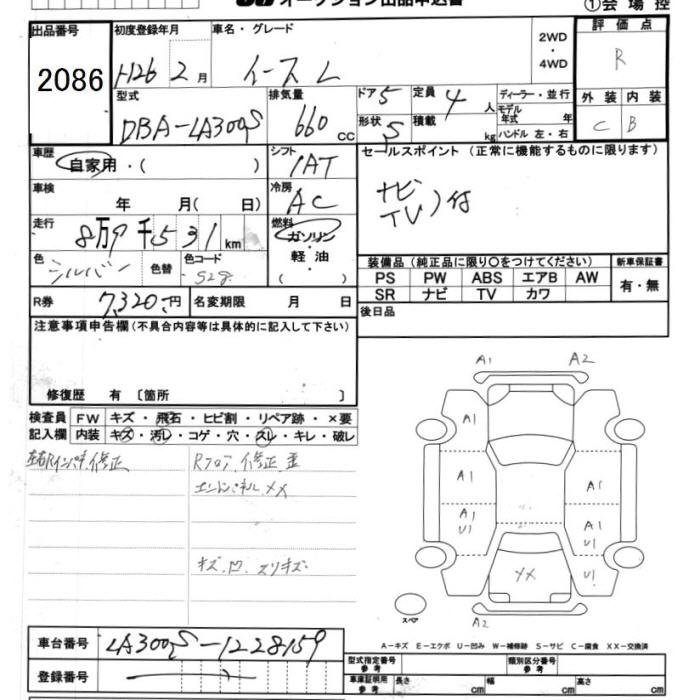 オークション出品申込書
①会場控
出品番号
2086
初度登録年月
H26 2月
車名・グレード
イース L
2WD
・
4WD
評価点
R
型式
DBA-LA300S
排気量
660 cc
ドア 5
形状 5
定員 4 人
積載 kg
ディーラー・並行
モデル年式 年
ハンドル 左・右
外装 内装
C B
車歴
自家用・( )
シフト
IAT
車検
年 月( 日)
冷房
AC
走行
8万9千531 km
燃料
ガソリン
・
軽油
( )
色
シルバー
色替
色コード
S28
R券 7,320円
名変期限 月 日
セールスポイント (正常に機能するものに限ります)
ナビ
TV )付
装備品(純正品に限り○をつけてください)
新車保証書
PS PW ABS エアB AW
SR ナビ TV カワ
有・無
後日品
注意事項申告欄(不具合内容等は具体的に記入して下さい)
修復歴 有 〔箇所 〕
検査員
記入欄
FW キズ・飛石・ヒビ割・リペア跡・×要
内装 キズ・汚レ・コゲ・穴・スレ・キレ・破レ
左右Rインパネ修正
Rフロア修正 歪
エンドパネルXX
キズ、凹 スリキズ
A1 A2
A1
A1 A1
A1 U1
A1 U1
XX
U1
スペア
A2
A-キズ E-エクボ U-凹み W-補修跡 S-サビ C-腐食 XX-交換済
車台番号
LA300S-1228159
登録番号
型式指定番号 参考
類別区分番号 参考
車庫証明用 参考
長さ cm 幅 cm 高さ cm